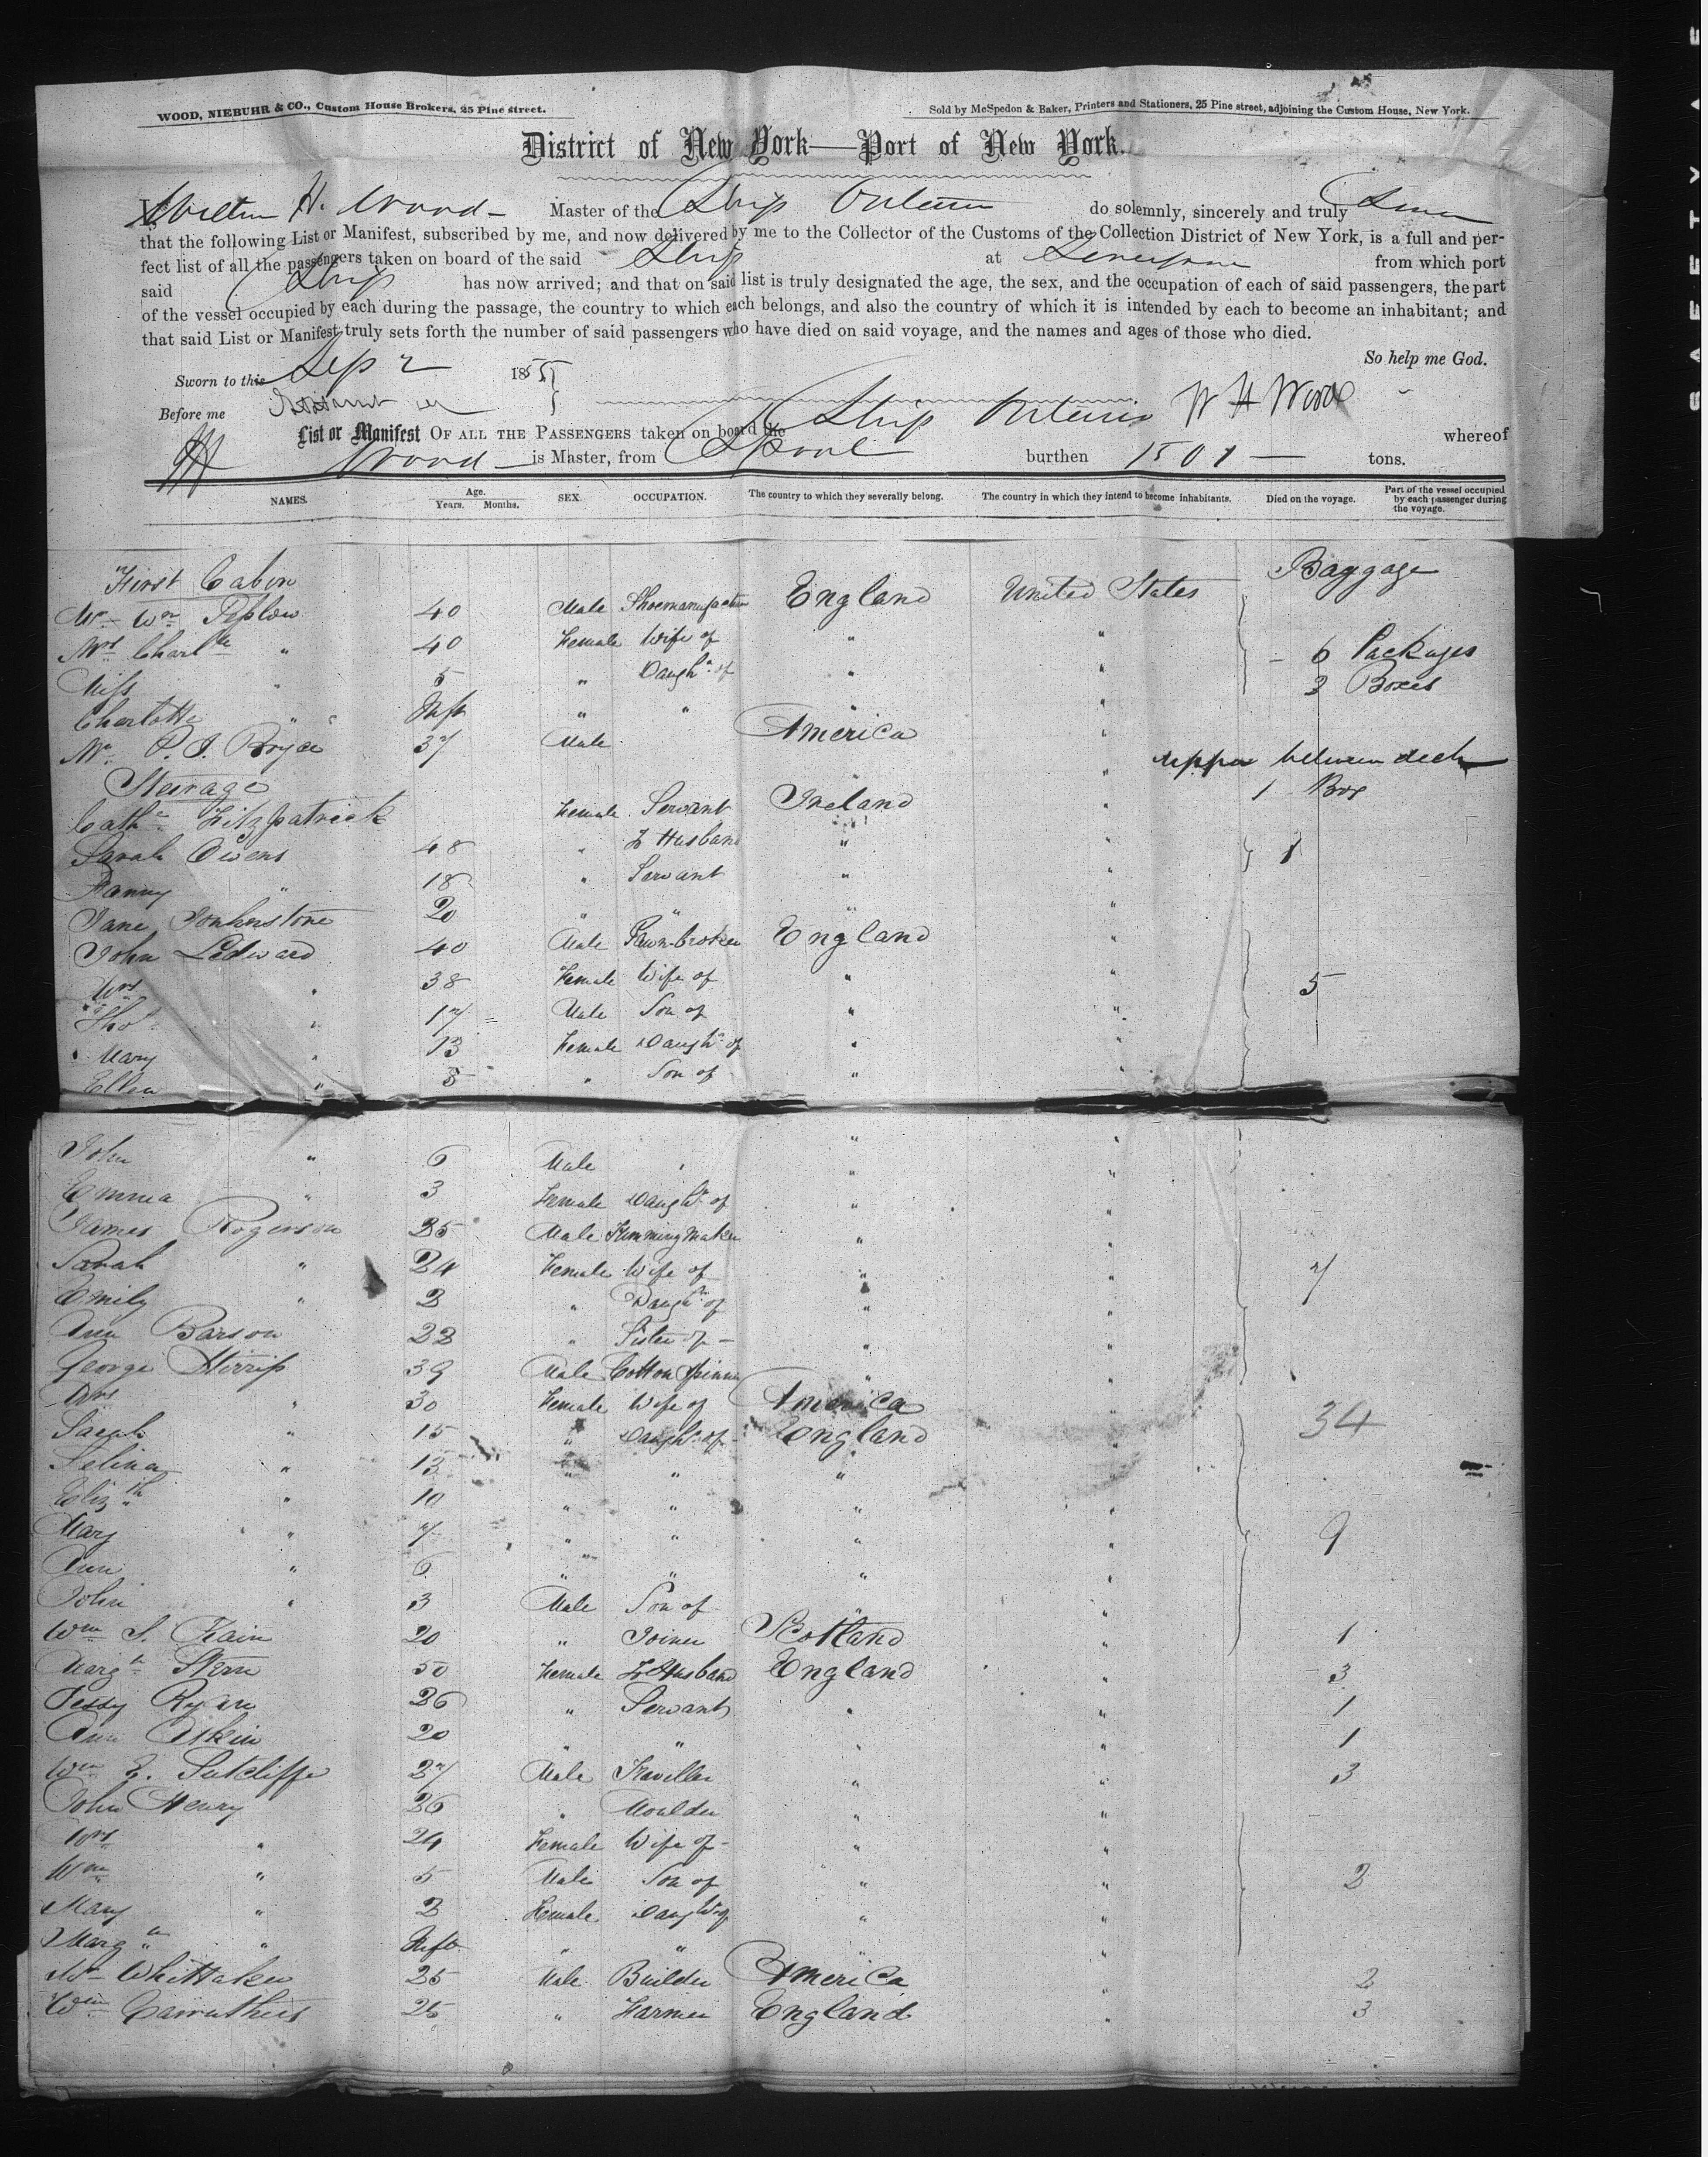 WOOD, NIEBUHR & CO., Custom House Brokers, 25 Pine street.
Sold by McSpedon & Baker, Printers and Stationers, 25 Pine street, adjoining the Custom House, New York.
District of New York—Port of New York.
I, H. Wood Master of the Ship do solemnly, sincerely and truly
that the following List or Manifest, subscribed by me, and now delivered by me to the Collector of the Customs of the Collection District of New York, is a full and per-
fect list of all the passengers taken on board of the said Ship at from which port
said Ship has now arrived; and that on said list is truly designated the age, the sex, and the occupation of each of said passengers, the part
of the vessel occupied by each during the passage, the country to which each belongs, and also the country of which it is intended by each to become an inhabitant; and
that said List or Manifest truly sets forth the number of said passengers who have died on said voyage, and the names and ages of those who died.
So help me God.
Sworn to this Sep 2 1855
Before me W H Wood
List or Manifest OF ALL THE PASSENGERS taken on board the Ship whereof
Wood is Master, from L'pool burthen 1501 tons.
NAMES. Age. Years. Months. SEX. OCCUPATION. The country to which they severally belong. The country in which they intend to become inhabitants. Died on the voyage. Part of the vessel occupied by each passenger during the voyage.
First Cabin Baggage
Mr. Wm 40 Male England United States
Mrs " 40 Female Wife of " " 6 Packages
Miss " 5 " Daughr of " " 3 Boxes
Charlotte " " Inft " " " "
Mr. P. J. Bryce 37 Male America "
Steerage upper between deck
Cathe Fitzpatrick Female Servant Ireland " 1 Box
Sarah Owens 48 " To Husband " " 1
Fanny " 18 " Servant " "
Jane 20 " " " "
John Ledward 40 Male Pawn-broker England "
Mrs " 38 Female Wife of " " 5
Thos " 17 Male Son of " "
Mary " 13 Female Daughr of " "
Ellen " 8 " Son of " "
John " 6 Male " " "
Emma " 3 Female Daughr of " "
James Rogerson 25 Male " "
Sarah " 24 Female Wife of " " 7
Emily " 2 " Daughr of " "
Ann Barson 22 " Sister of " "
George Stirrip 39 Male Cotton Spinner " "
Mrs " 30 Female Wife of America " 34
Sarah " 15 " Daughr of England "
Selina " 13 " " " "
Elizth " 10 " " " "
Mary " 7 " " " " 9
Ann " 6 " " " "
John " 3 Male Son of " "
Wm S. Kain 20 " Joiner Scotland " 1
Margt 50 Female To Husband England " 3
Jessy Ryan 26 " Servant " " 1
Ann Askin 20 " " " " 1
Wm E. Sutcliffe 27 Male Traveller " " 3
John Henry 26 " Moulder " "
Mrs " 24 Female Wife of " "
Wm " 5 Male Son of " " 2
Mary " 2 Female Daughr of " "
Margt " Inft " " " "
Mr Whittaker 25 Male Builder America " 2
Wm Carruthers 25 " Farmer England " 3